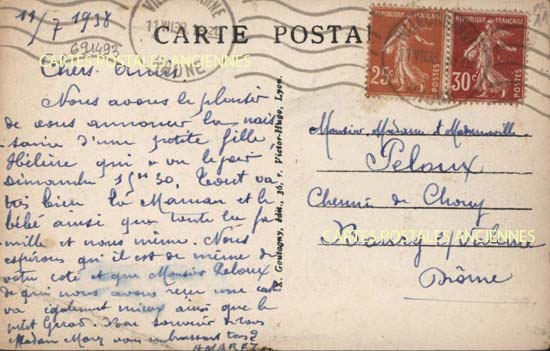 11/7 1938
691493
CARTE POSTALE
Chers Amis
Nous avons le plaisir
de vous annoncer la nais
sance d'une petite fille
Hélène qui a vu le jour
Dimanche 15H30. Tout va
très bien la Maman et le
bébé ainsi que toute la fa
mille et nous même. Nous
espérons qu'il est de même de
votre coté et que Monsieur Peloux
de qui nous avons reçu une carte
va également mieux ainsi que le
petit
souvenir de tous
Madame Mary vous embrassent tous
Goutagny, édit., 36, r. Victor-Hugo, Lyon.
RÉPUBLIQUE FRANÇAISE
25c
POSTES
RÉPUBLIQUE FRANÇAISE
30c
POSTES
Monsieur Madame et Mademoiselle
Peloux
Chemin de
Bourg
Drôme
CARTES POSTALES ANCIENNES
CARTES POSTALES ANCIENNES
CARTES POSTALES ANCIENNES